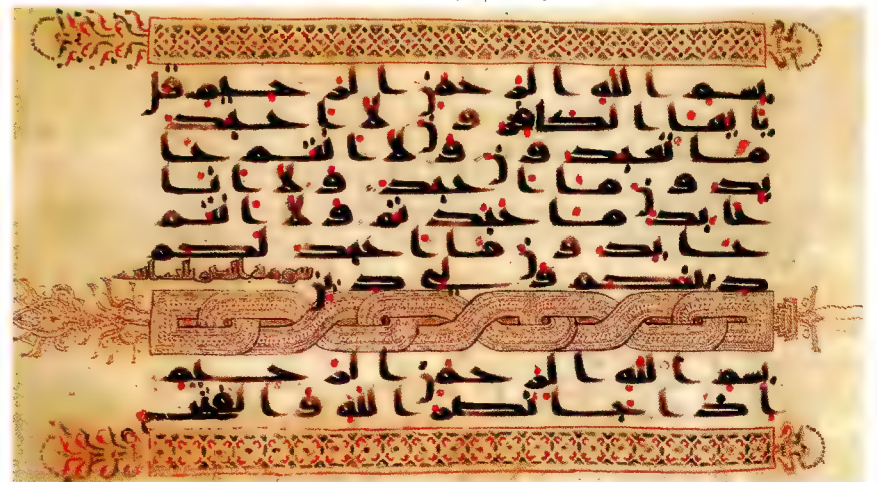 بسم الله الرحمن الرحيم قل
يا يها الكافرون لا اعبد
ما تعبدون ولا انتم عا
بدون ما اعبد ولا انا
عابد ما عبدتم ولا انتم
عابدون ما اعبد لكم
دينكم ولي دين
بسم الله الرحمن الرحيم
اذا جا نصر الله والفتح